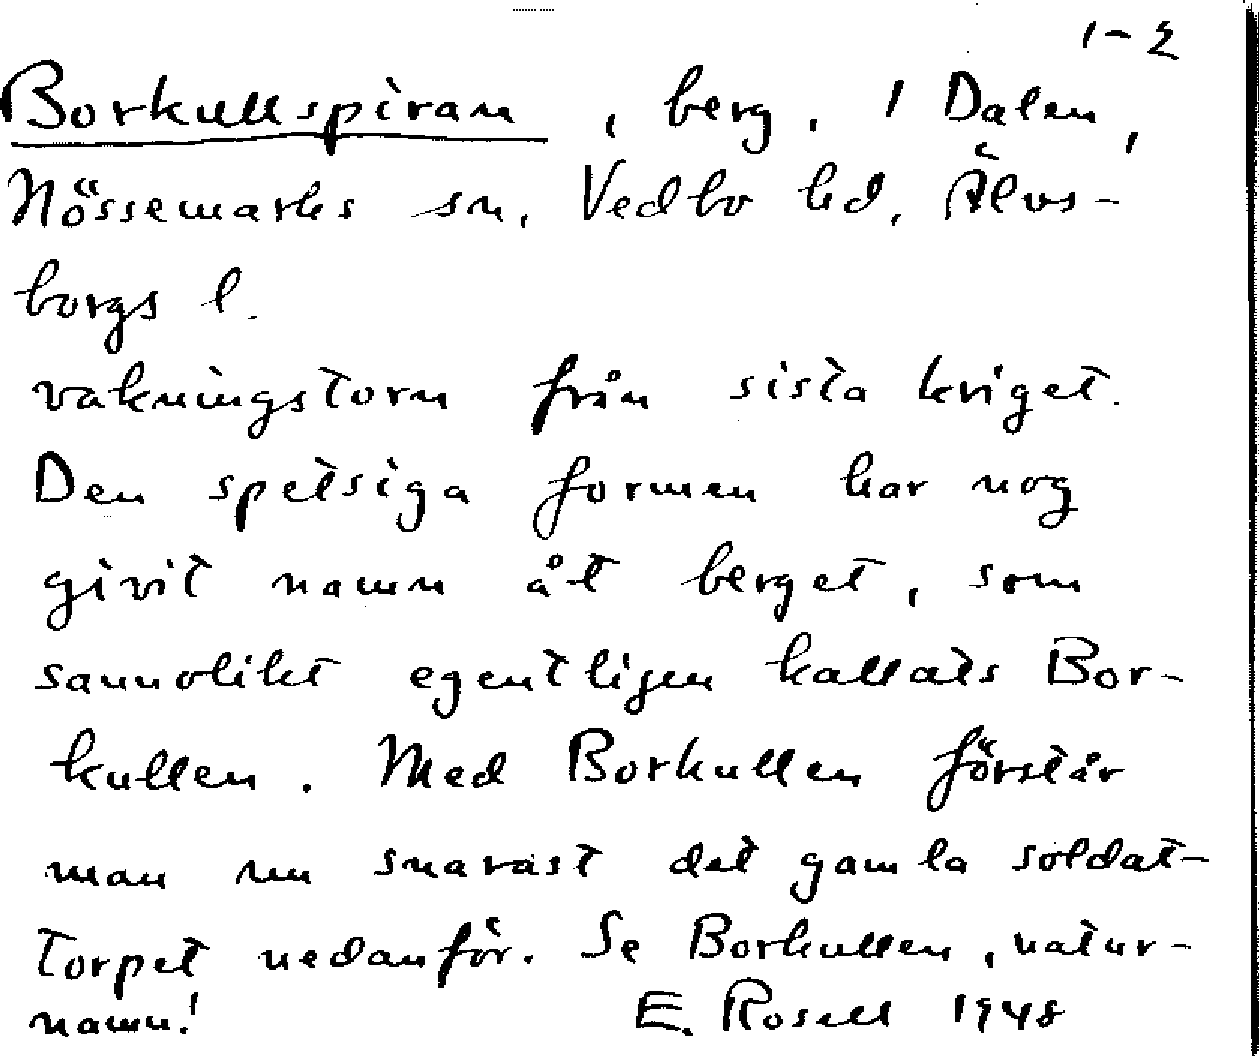 1-2
Borkullspiran, berg. 1 Dalen,
Nössemarks sn, Vedbo hd, Älvs-
borgs l.
vakningstorn från sista kriget.
Den spetsiga formen har nog
givit namn åt berget, som
sannolikt egentligen kallats Bor-
kullen. Med Borkullen förstår
man nu snarast det gamla soldat-
torpet nedanför. Se Borkullen, natur-
namn!
E. Rosell 1948